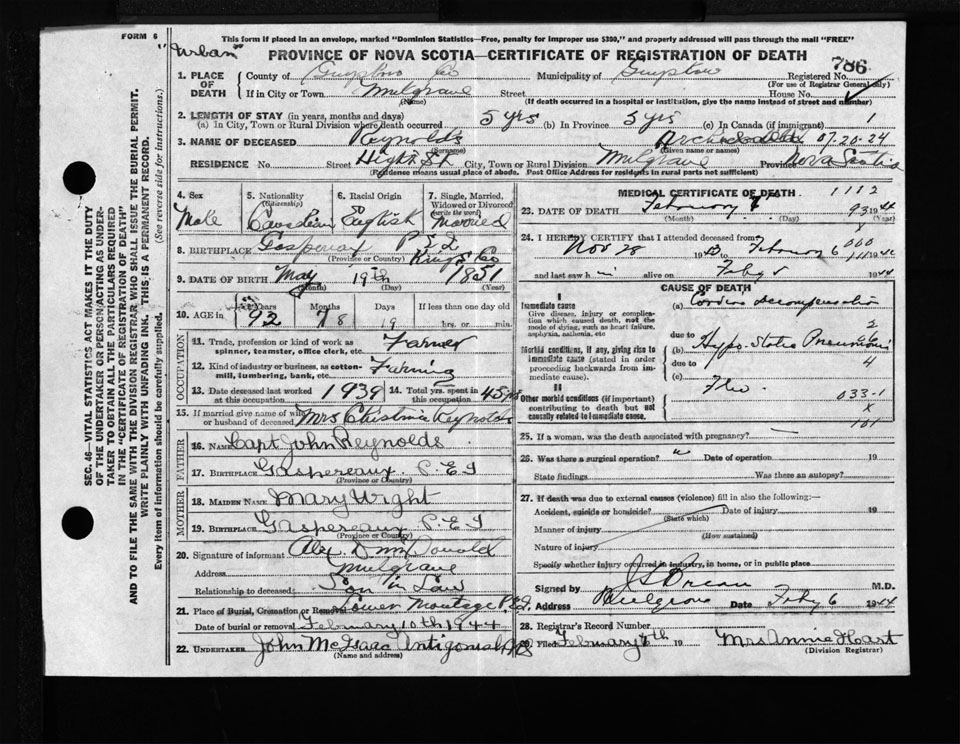 FORM 6
This form if placed in an envelope, marked "Dominion Statistics—Free, penalty for improper use $300," and properly addressed will pass through the mail "FREE"
"Urban"
PROVINCE OF NOVA SCOTIA—CERTIFICATE OF REGISTRATION OF DEATH
786
1. PLACE OF DEATH County of Guysboro Co Municipality of Registered No.
(For use of Registrar General only)
If in City or Town Mulgrave Street House No.
(Name) (If death occurred in a hospital or institution, give the name instead of street and number)
2. LENGTH OF STAY (in years, months and days)
(a) In City, Town or Rural Division where death occurred 5 yrs (b) In Province 5 yrs (c) In Canada (if immigrant) 1
3. NAME OF DECEASED Reynolds Archibald 07.20.24
(Surname) (Given name or names)
RESIDENCE No. Street High St City, Town or Rural Division Mulgrave Province Nova Scotia
(Residence means usual place of abode. Post Office Address for residents in rural parts not sufficient)
4. Sex Male
5. Nationality (Citizenship) Canadian
6. Racial Origin English
7. Single, Married, Widowed or Divorced (write the word) Married
8. BIRTHPLACE Gaspereax P E I Kings Co
(Province or Country)
9. DATE OF BIRTH May 19th 1851
(Month) (Day) (Year)
10. AGE in Years Months Days If less than one day old
92 8 19 hrs. or min.
OCCUPATION
11. Trade, profession or kind of work as spinner, teamster, office clerk, etc. Farmer
12. Kind of industry or business, as cotton-mill, lumbering, bank, etc. Farming
13. Date deceased last worked at this occupation 1939 14. Total yrs. spent in this occupation 45 yrs
15. If married give name of wife or husband of deceased Mrs Christina Reynolds
FATHER
16. NAME Capt John Reynolds
17. BIRTHPLACE Gaspereaux P.E.I
(Province or Country)
MOTHER
18. MAIDEN NAME Mary Wright
19. BIRTHPLACE Gaspereaux P.E I
(Province or Country)
20. Signature of informant Alex. D McDonald
Address Mulgrave
Relationship to deceased Son in Law
21. Place of Burial, Cremation or Removal Lower Montage P.E.I
Date of burial or removal February 10th 1944
22. UNDERTAKER John McIsaac Antigonish NS
(Name and address)
MEDICAL CERTIFICATE OF DEATH 1112
23. DATE OF DEATH February 1944
(Month) (Day)
24. I HEREBY CERTIFY that I attended deceased from
Nov 28 19 February 6
and last saw h alive on Feby 1944
CAUSE OF DEATH
I
Immediate cause (a) Cardiac decompensation
Give disease, injury or complication which caused death, not the mode of dying, such as heart failure, asphyxia, asthenia, etc
due to 2
Morbid conditions, if any, giving rise to immediate cause (stated in order proceeding backwards from immediate cause).
(b) Hypo-Static Pneumonia
due to 4
(c) Flu.
II
Other morbid conditions (if important) contributing to death but not causally related to immediate cause. 033-1
x
25. If a woman, was the death associated with pregnancy? —
26. Was there a surgical operation? Date of operation 19
State findings Was there an autopsy?
27. If death was due to external causes (violence) fill in also the following:—
Accident, suicide or homicide? Date of injury 19
(State which)
Manner of injury
(How sustained)
Nature of injury
Specify whether injury occurred in industry, in home, or in public place
Signed by M.D.
Address Mulgrave Date Feby 6 1944
28. Registrar's Record Number
29. Filed February 19 Mrs Annie Hart
(Division Registrar)
SEC. 46—VITAL STATISTICS ACT MAKES IT THE DUTY OF THE UNDERTAKER OR PERSON ACTING AS UNDERTAKER TO OBTAIN ALL THE PARTICULARS REQUIRED IN THE "CERTIFICATE OF REGISTRATION OF DEATH" AND TO FILE THE SAME WITH THE DIVISION REGISTRAR WHO SHALL ISSUE THE BURIAL PERMIT.
WRITE PLAINLY WITH UNFADING INK. THIS IS A PERMANENT RECORD.
Every item of information should be carefully supplied. (See reverse side for instructions.)